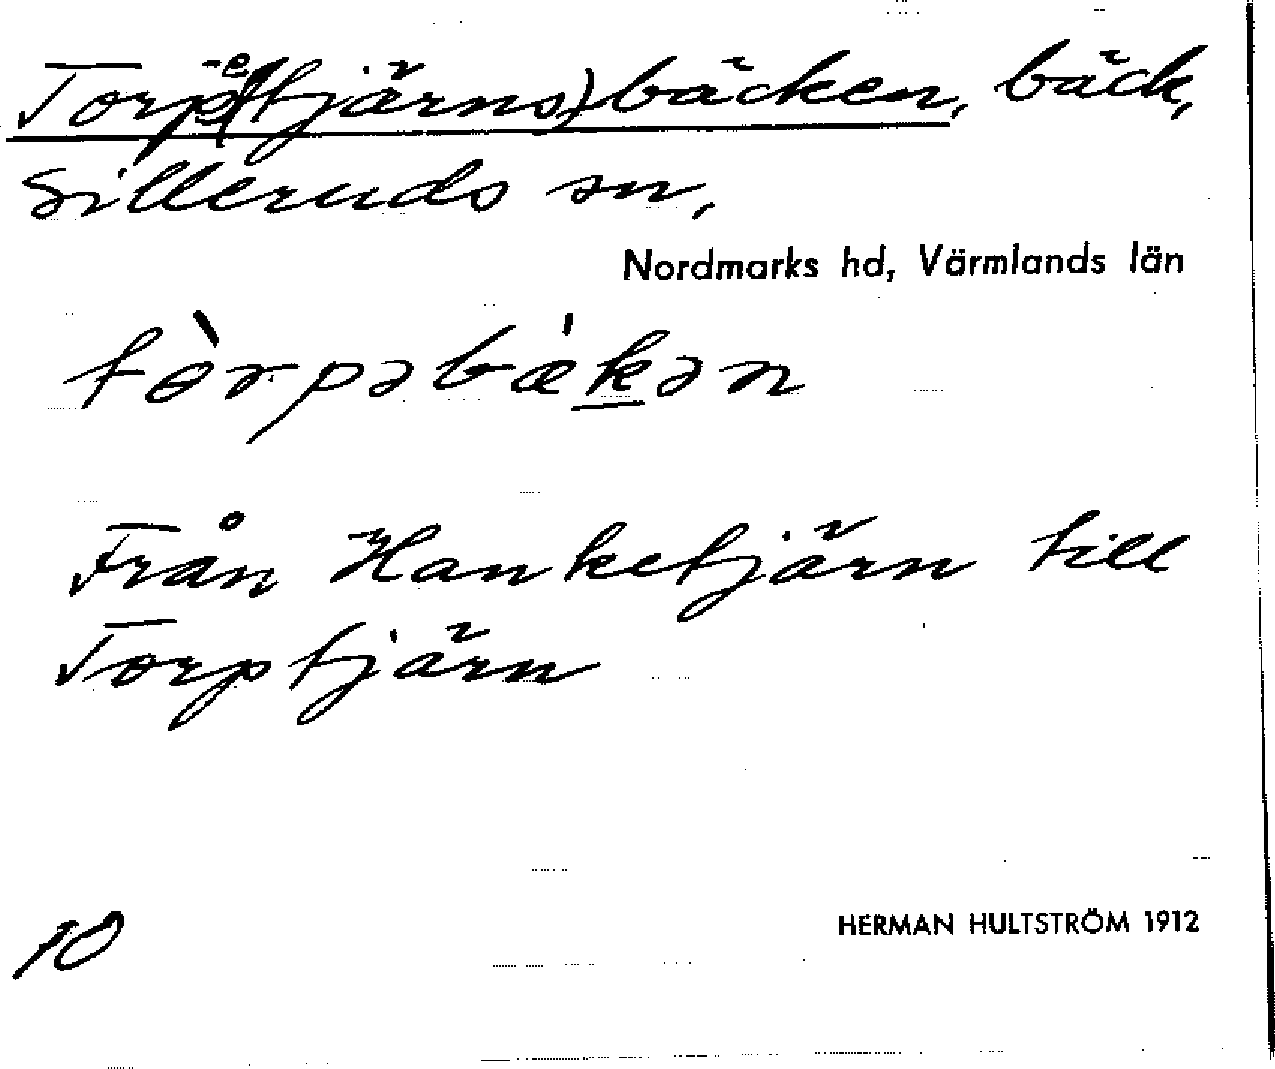 Torp-e(tjärns)bäcken, bäck,
Silleruds sn,
Nordmarks hd, Värmlands län
tòrpəbǽkən
Från Hanketjärn till
Torptjärn
10
HERMAN HULTSTRÖM 1912